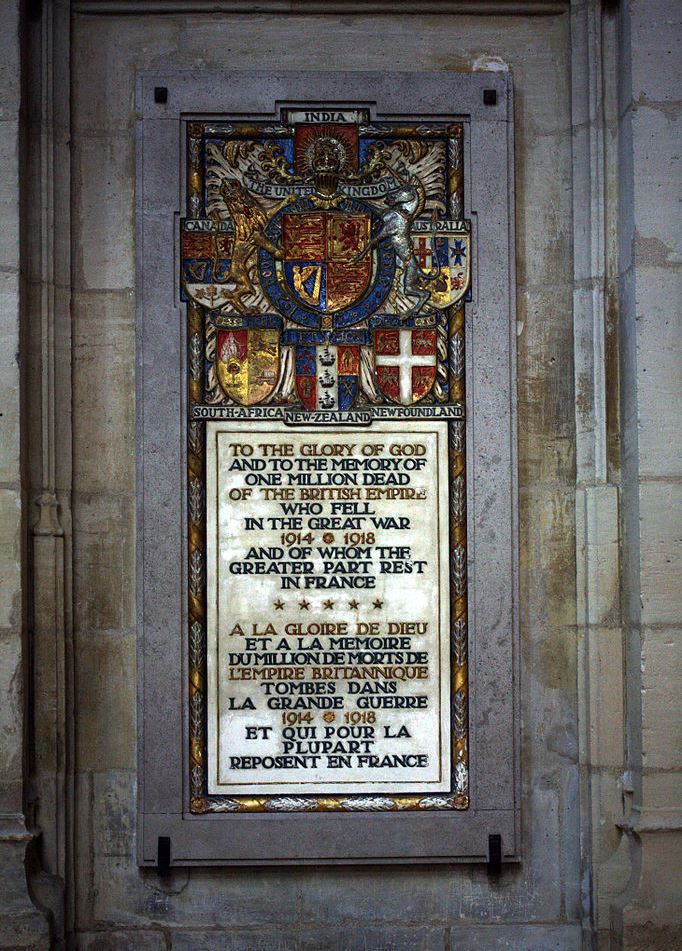 INDIA
THE UNITED KINGDOM
CANADA
AUSTRALIA
SOUTH-AFRICA
NEW-ZEALAND
NEWFOUNDLAND
TO THE GLORY OF GOD
AND TO THE MEMORY OF
ONE MILLION DEAD
OF THE BRITISH EMPIRE
WHO FELL
IN THE GREAT WAR
1914 1918
AND OF WHOM THE
GREATER PART REST
IN FRANCE
A LA GLOIRE DE DIEU
ET A LA MEMOIRE
DU MILLION DE MORTS DE
L'EMPIRE BRITANNIQUE
TOMBES DANS
LA GRANDE GUERRE
1914 1918
ET QUI POUR LA
PLUPART
REPOSENT EN FRANCE